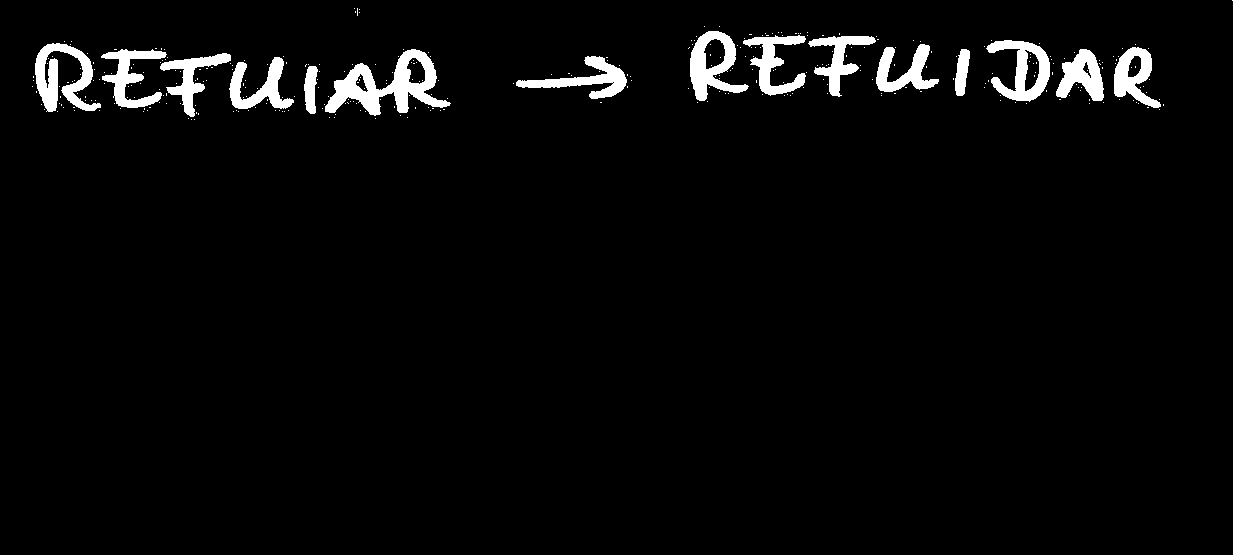 REFUIAR → REFUIDAR